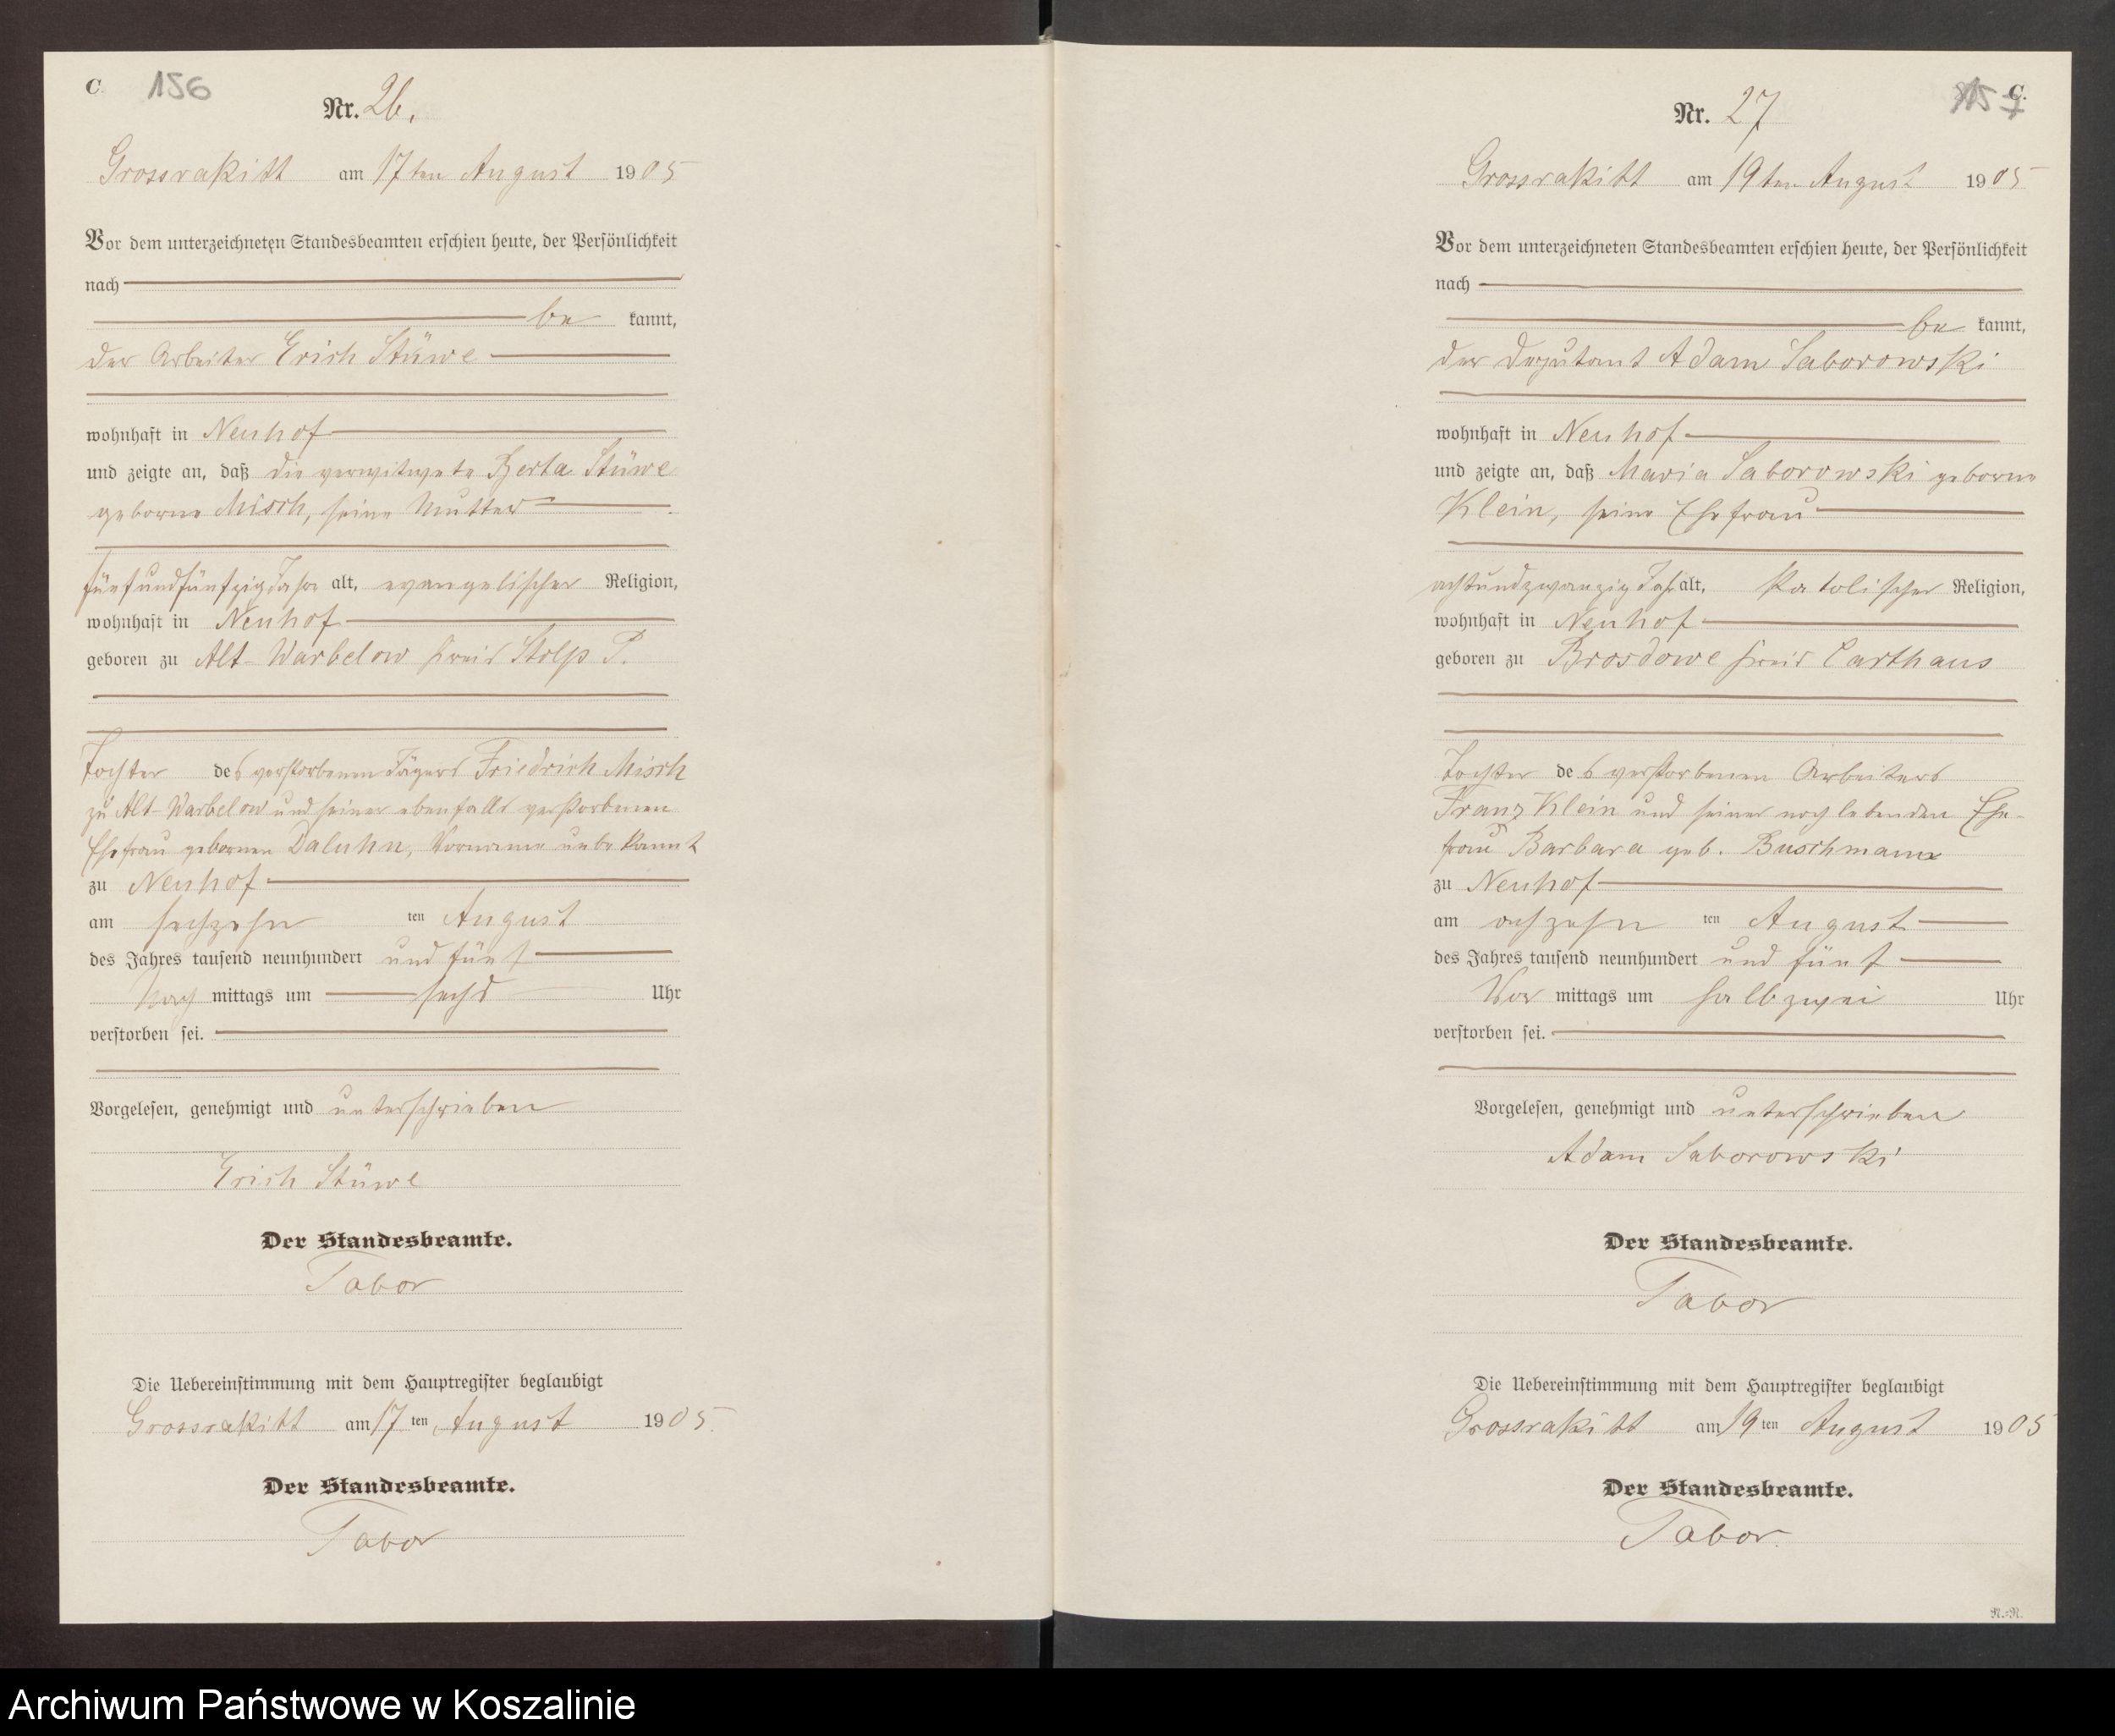 C.
156
Nr. 26.
Grossrakitt am 17ten August 1905
Vor dem unterzeichneten Standesbeamten erschien heute, der Persönlichkeit
nach
be kannt,
der Arbeiter Erich Stüwe
wohnhaft in Neuhof
und zeigte an, daß die verwitwete Berta Stüwe
geborne Misch, seine Mutter
fünfundfünfzig Jahre alt, evangelischer Religion,
wohnhaft in Neuhof
geboren zu Alt-Warbelow Kreis Stolp P.
Tochter des verstorbenen Jägers Friedrich Misch
zu Alt-Warbelow und seiner ebenfalls verstorbenen
Ehefrau gebornen Daluhn, Vorname unbekannt
zu Neuhof
am sechzehn ten August
des Jahres tausend neunhundert und fünf
Nach mittags um sechs Uhr
verstorben sei.
Vorgelesen, genehmigt und unterschrieben
Erich Stüwe
Der Standesbeamte.
Tabor
Die Uebereinstimmung mit dem Hauptregister beglaubigt
Grossrakitt am 17 ten August 1905.
Der Standesbeamte.
Tabor
C.
157
Nr. 27
Grossrakitt am 19ten August 1905
Vor dem unterzeichneten Standesbeamten erschien heute, der Persönlichkeit
nach
be kannt,
der Deputant Adam Saborowski
wohnhaft in Neuhof
und zeigte an, daß Maria Saborowski geborne
Klein, seine Ehefrau
achtundzwanzig Jahr alt, katolischer Religion,
wohnhaft in Neuhof
geboren zu Brosdowe Kreis Carthaus
Tochter des verstorbenen Arbeiters
Franz Klein und seiner noch lebenden Ehe-
frau Barbara geb. Buschmann
zu Neuhof
am achzehn ten August
des Jahres tausend neunhundert und fünf
Vor mittags um halb zwei Uhr
verstorben sei.
Vorgelesen, genehmigt und unterschrieben
Adam Saborowski
Der Standesbeamte.
Tabor
Die Uebereinstimmung mit dem Hauptregister beglaubigt
Grossrakitt am 19 ten August 1905
Der Standesbeamte.
Tabor.
N.-N.
Archiwum Państwowe w Koszalinie